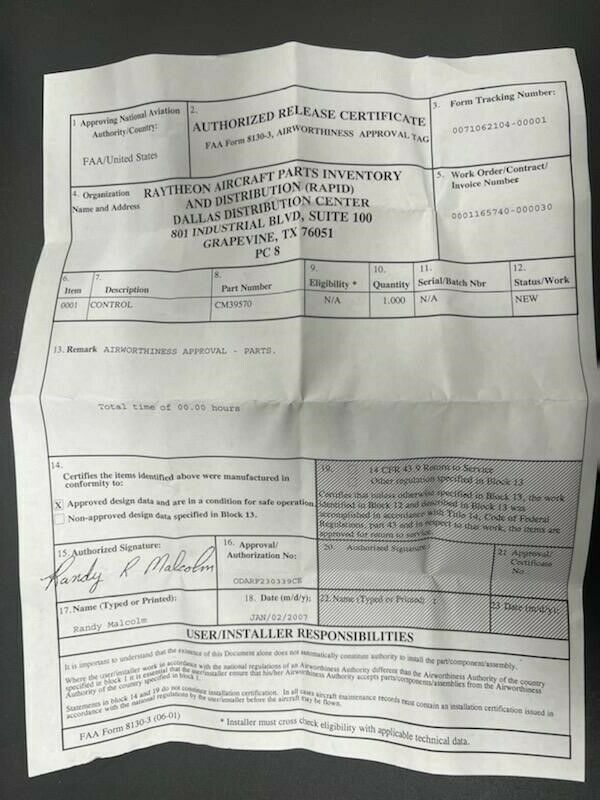 1 Approving National Aviation
Authority/Country:
FAA/United States
2.
AUTHORIZED RELEASE CERTIFICATE
FAA Form 8130-3, AIRWORTHINESS APPROVAL TAG
3. Form Tracking Number:
0071062104-00001
4. Organization
Name and Address
RAYTHEON AIRCRAFT PARTS INVENTORY
AND DISTRIBUTION (RAPID)
DALLAS DISTRIBUTION CENTER
801 INDUSTRIAL BLVD, SUITE 100
GRAPEVINE, TX 76051
PC 8
5. Work Order/Contract/
Invoice Number
0001165740-000030
6. Item
7. Description
8. Part Number
9. Eligibility *
10. Quantity
11. Serial/Batch Nbr
12. Status/Work
0001 CONTROL CM39570 N/A 1.000 N/A NEW
13. Remark AIRWORTHINESS APPROVAL - PARTS.
Total time of 00.00 hours
14.
Certifies the items identified above were manufactured in
conformity to:
X Approved design data and are in a condition for safe operation.
Non-approved design data specified in Block 13.
19. 14 CFR 43.9 Return to Service
Other regulation specified in Block 13
Certifies that unless otherwise specified in Block 13, the work
identified in Block 12 and described in Block 13 was
accomplished in accordance with Title 14, Code of Federal
Regulations, part 43 and in respect to that work, the items are
approved for return to service.
15. Authorized Signature:
Randy R Malcolm
16. Approval/
Authorization No:
ODARF230339CE
20. Authorized Signature
21 Approval/
Certificate
No.
17. Name (Typed or Printed):
Randy Malcolm
18. Date (m/d/y):
JAN/02/2007
22. Name (Typed or Printed)
23 Date (m/d/y):
USER/INSTALLER RESPONSIBILITIES
It is important to understand that the existence of this Document alone does not automatically constitute authority to install the part/component/assembly.
Where the user/installer work in accordance with the national regulations of an Airworthiness Authority different than the Airworthiness Authority of the country
specified in block 1 it is essential that the user/installer ensure that his/her Airworthiness Authority accepts parts/components/assemblies from the Airworthiness
Authority of the country specified in block 1.
Statements in block 14 and 19 do not constitute installation certification. In all cases aircraft maintenance records must contain an installation certification issued in
accordance with the national regulations by the user/installer before the aircraft may be flown.
FAA Form 8130-3 (06-01)
* Installer must cross check eligibility with applicable technical data.